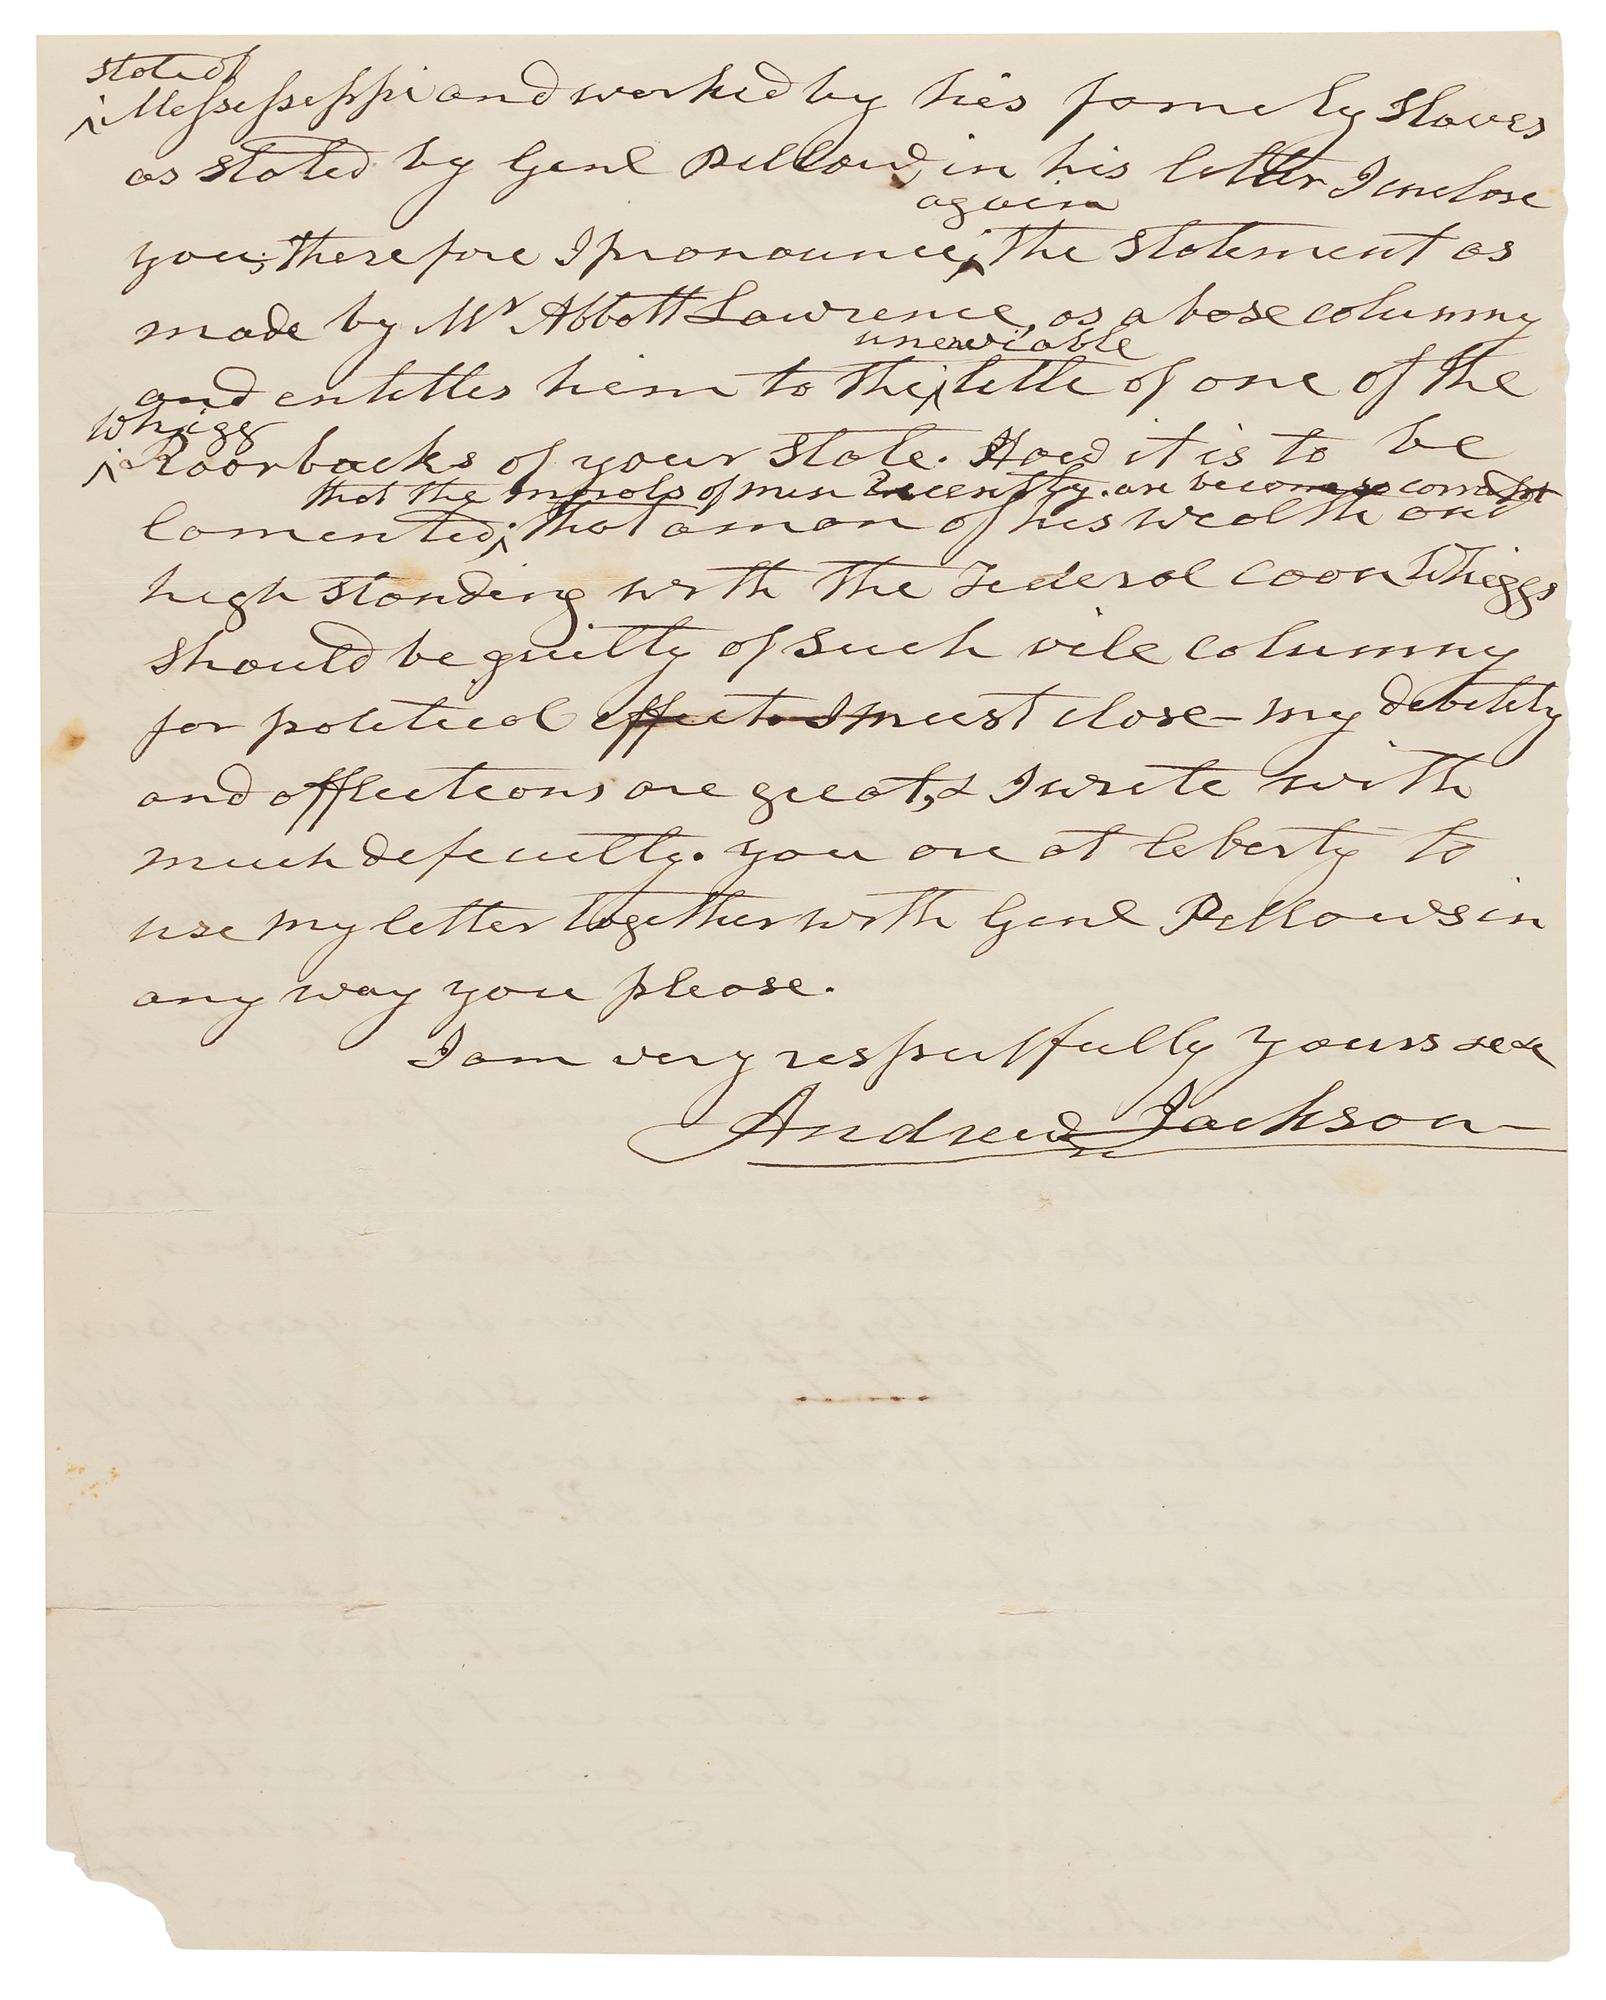 state of
Messessippi and worked by hies famely Slaves
as stated by Genl Pillow, in his letter I inclose
again
you; therefore I pronounce, the statement as
made by Mr Abbott Lawrence, as a base calumny
unenviable
and entitles him to the title of one of the
Whigg
Roorbacks of your State. How it is to be
that the morals of men recently are become so corrupt
lamented; that a man of his wealth and
high standing with the Federal coon Whiggs
should be guilty of such vile calumny
for political effect. I must close - my debility
and afflictions are great, & I write with
much deficulty. you are at leberty to
use my letter together with Genl Pillows in
any way you please.
I am very respectfully yours &c &c
Andrew Jackson